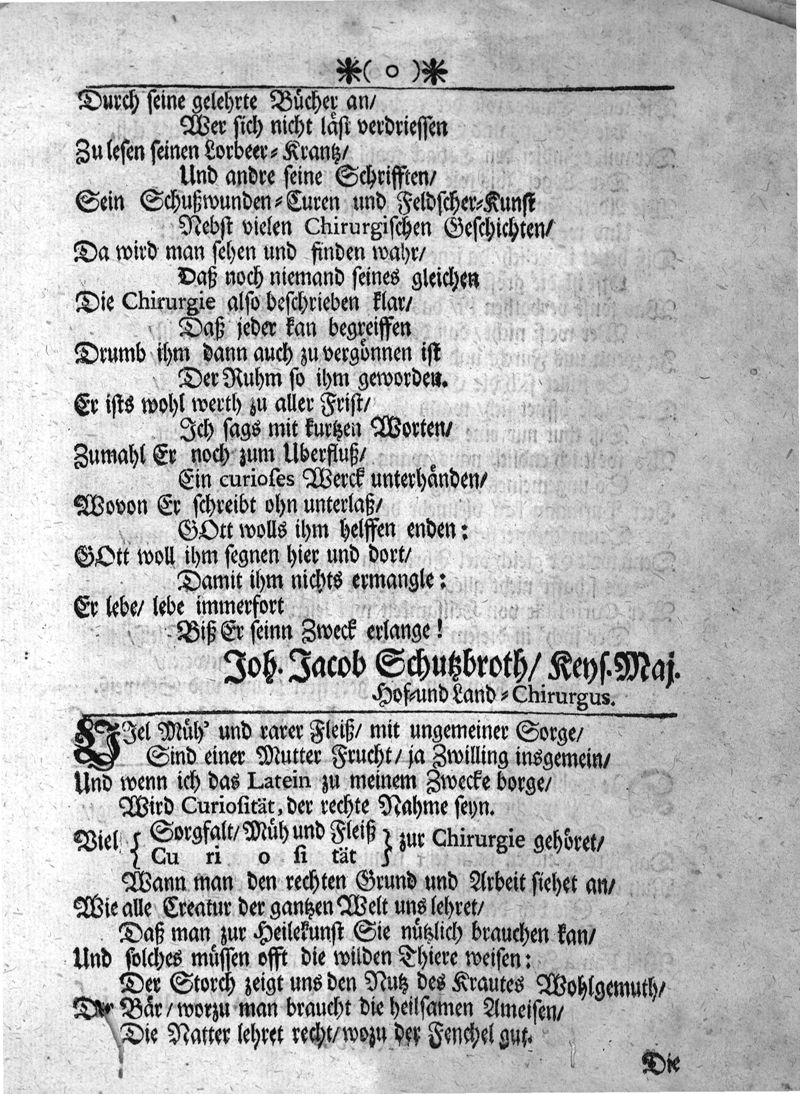 *( o )*
Durch seine gelehrte Bücher an/
Wer sich nicht läst verdriessen
Zu lesen seinen Lorbeer-Krantz/
Und andre seine Schrifften/
Sein Schußwunden-Curen und Feldscher-Kunst
Nebst vielen Chirurgischen Geschichten/
Da wird man sehen und finden wahr/
Daß noch niemand seines gleichen
Die Chirurgie also beschrieben klar/
Daß jeder kan begreiffen
Drumb ihm dann auch zu vergönnen ist
Der Ruhm so ihm geworden.
Er ists wohl werth zu aller Frist/
Ich sags mit kurtzen Worten/
Zumahl Er noch zum Uberfluß/
Ein curioses Werck unterhänden/
Wovon Er schreibt ohn unterlaß/
GOtt wolls ihm helffen enden:
GOtt woll ihm segnen hier und dort/
Damit ihm nichts ermangle:
Er lebe/ lebe immerfort
Biß Er seinn Zweck erlange!
Joh. Jacob Schutzbroth/ Keys. Maj.
Hof-und Land-Chirurgus.
VIel Müh' und rarer Fleiß/ mit ungemeiner Sorge/
Sind einer Mutter Frucht/ ja Zwilling insgemein/
Und wenn ich das Latein zu meinem Zwecke borge/
Wird Curiosität, der rechte Nahme seyn.
Viel { Sorgfalt/ Müh und Fleiß } zur Chirurgie gehöret/
Cu ri o si tät
Wann man den rechten Grund und Arbeit siehet an/
Wie alle Creatur der gantzen Welt uns lehret/
Daß man zur Heilekunst Sie nützlich brauchen kan/
Und solches müssen offt die wilden Thiere weisen:
Der Storch zeigt uns den Nutz des Krautes Wohlgemuth/
Der Bär/ worzu man braucht die heilsamen Ameisen/
Die Natter lehret recht/ wozu der Fenchel gut.
Die